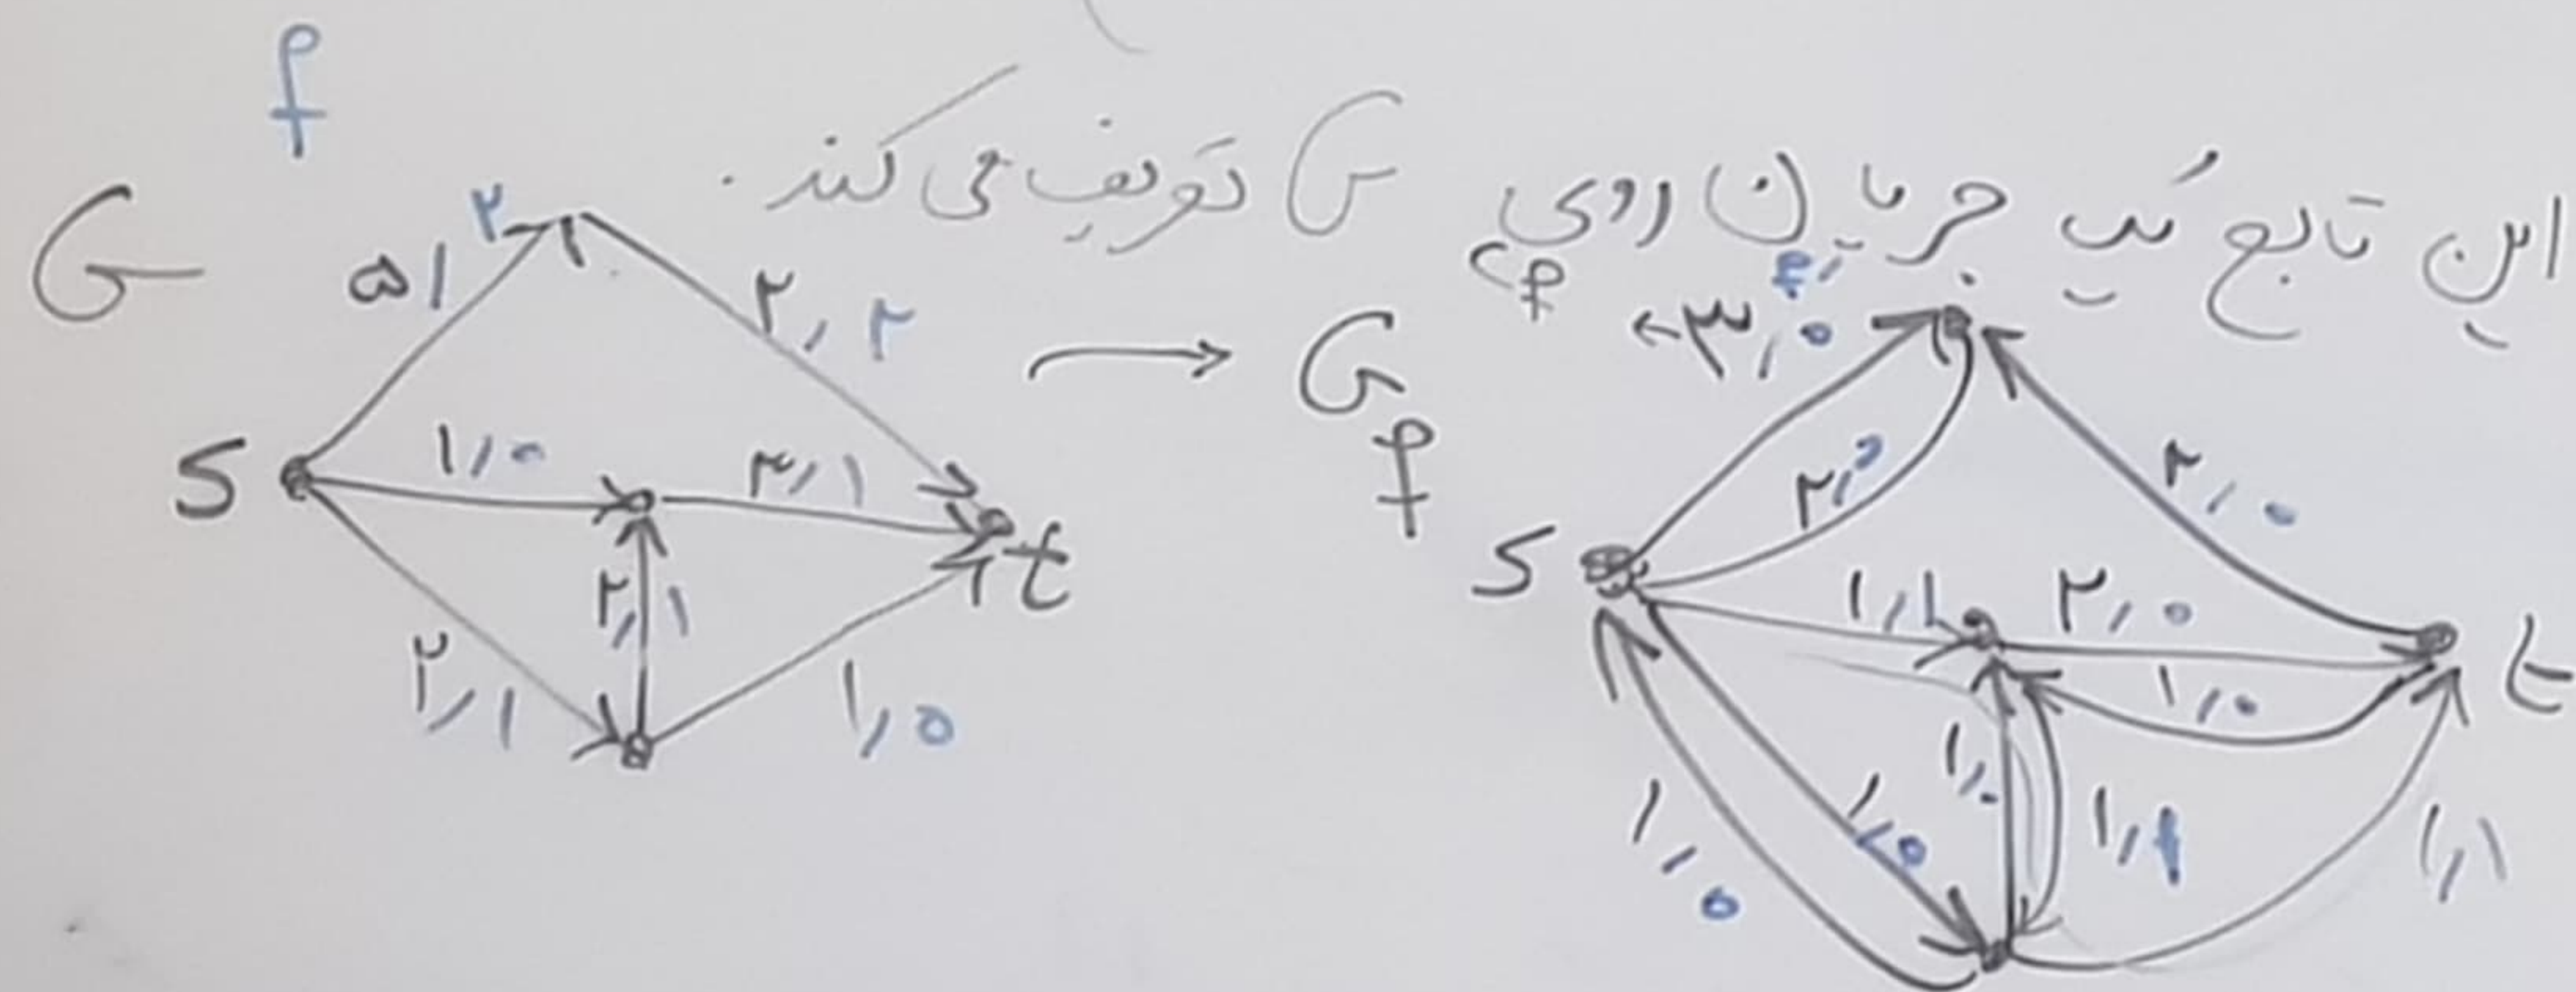 f
این تابع یک جریان روی G تعریف می‌کند.
G
۵/۲
۲,۲
S
۱,۰
۳,۱
t
۲,۱
۲,۱
۱,۰
G f
c f ← ۳,۰
f'
۲,۰
۲,۰
S
۱,۱
۲,۰
۱,۰
t
۱,۰
۱,۰
۱,۰
۱,۱
۱,۱